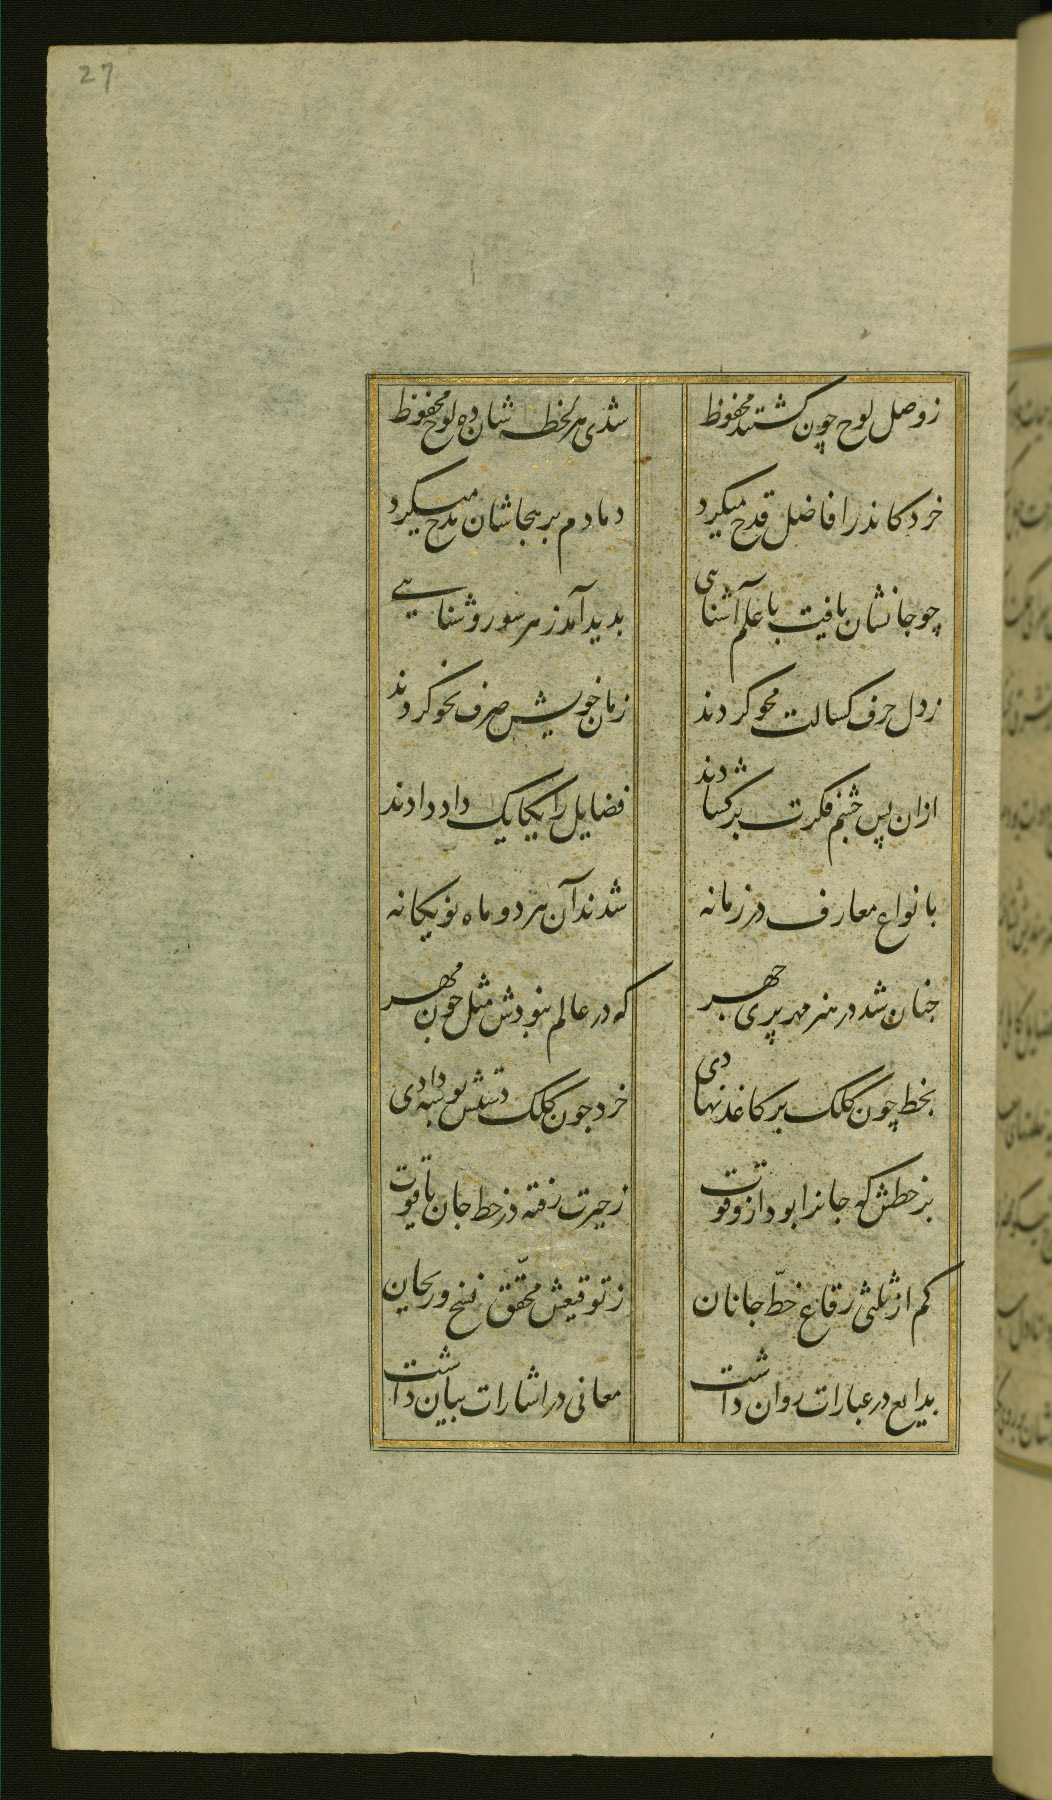 27
ز وصل لوح چون گشتند محفوظ
شدی هر لحظه شان ده لوح محفوظ
خرد کاندر افاضل قدح میکرد
دمادم بر هجاشان مدح میکرد
چو جانشان یافت با علم آشنایی
بدید آمد ز هر سو روشنایی
ز دل حرف کسالت محو کردند
زمان خویش صرف نحو کردند
ازان پس چشم فکرت برکشادند
فضایل را یکایک داد دادند
بانواع معارف در زمانه
شدند آن هر دو ماه نو یکانه
چنان شد در هنر مهر پری چهر
که در عالم نبودش مثل چون مهر
بخط چون کلک بر کاغذ نهادی
خرد چون کلک دستش بوسه دادی
بر خطش که جانرا بود ازو قوت
ز حیرت رفته در خط جان یاقوت
کم از ثلثی رقاع خطّ جانان
ز توقیعش محقّق نسخ و ریحان
بدایع در عبارات روان داشت
معانی در اشارات بیان داشت